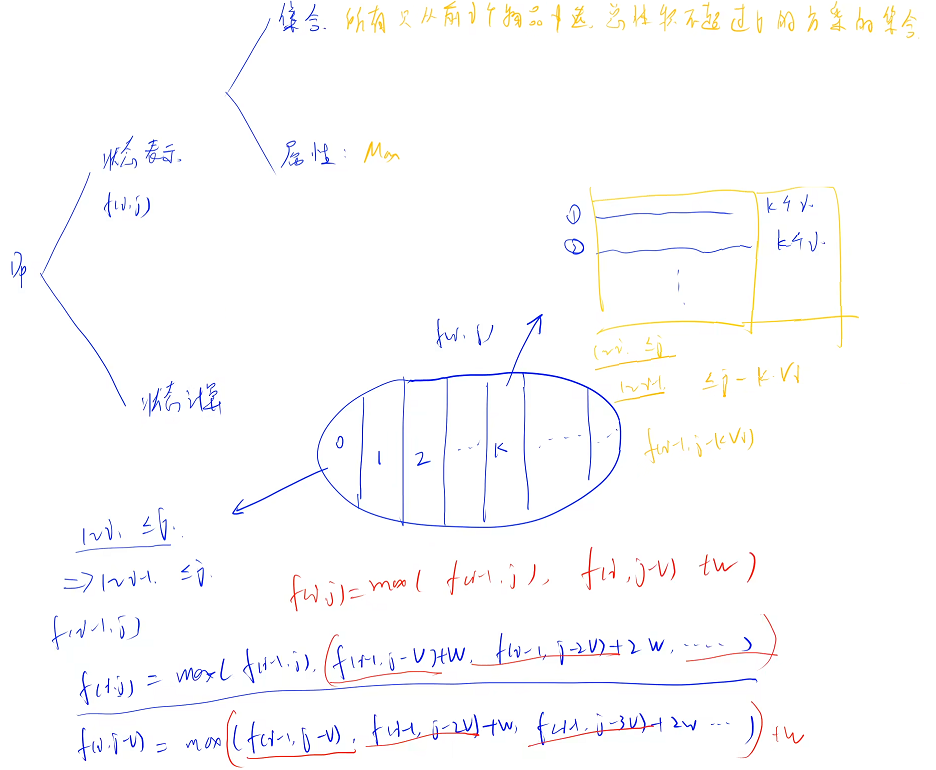 集合. 所有只从前i个物品中选, 总体积不超过j的方案的集合
属性: Max
状态表示.
f(i,j)
DP
状态计算
① k个i.
② k个i.
⋮
f(i,j)
1~i. ≤j
1~i-1. ≤j-k·Vi
f(i-1, j-kVi)
0 1 2 ... k ......
1~i. ≤j.
=>1~i-1. ≤j.
f(i-1,j)
f(i,j)=max( f(i-1,j), f(i,j-v) +w )
f(i,j) = max( f(i-1,j), f(i-1,j-v)+w, f(i-1,j-2v)+2w, ...... )
f(i,j-v) = max( f(i-1,j-v), f(i-1,j-2v)+w, f(i-1,j-3v)+2w ... ) +w